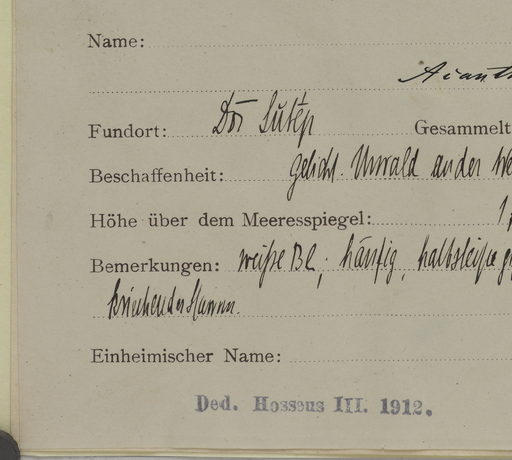 Name:
Acanth
Fundort: Doi Sutép Gesammelt
Beschaffenheit: gelicht. Urwald an der We
Höhe über dem Meeresspiegel: 1
Bemerkungen: weiße Bl; häufig,
kriechender Stamm.
Einheimischer Name:
Ded. Hosseus III. 1912.